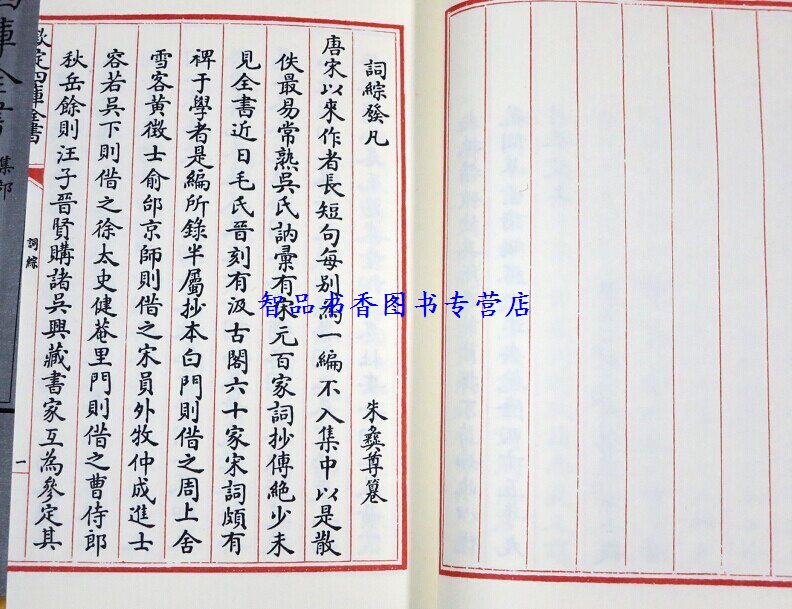 詞綜發凡
朱彝尊篹
唐宋以來作者長短句每別為一編不入集中以是散
佚最易常熟吳氏訥彚有宋元百家詞抄傳絶少未
見全書近日毛氏晉刻有汲古閣六十家宋詞頗有
裨于學者是編所錄半屬抄本白門則借之周上舍
雪客黃徵士俞邰京師則借之宋員外牧仲成進士
容若吳下則借之徐太史健菴里門則借之曹侍郎
秋岳餘則汪子晉賢購諸吳興藏書家互為參定其
欽定四庫全書
詞綜
一
四庫全書
集部
智品书香图书专营店